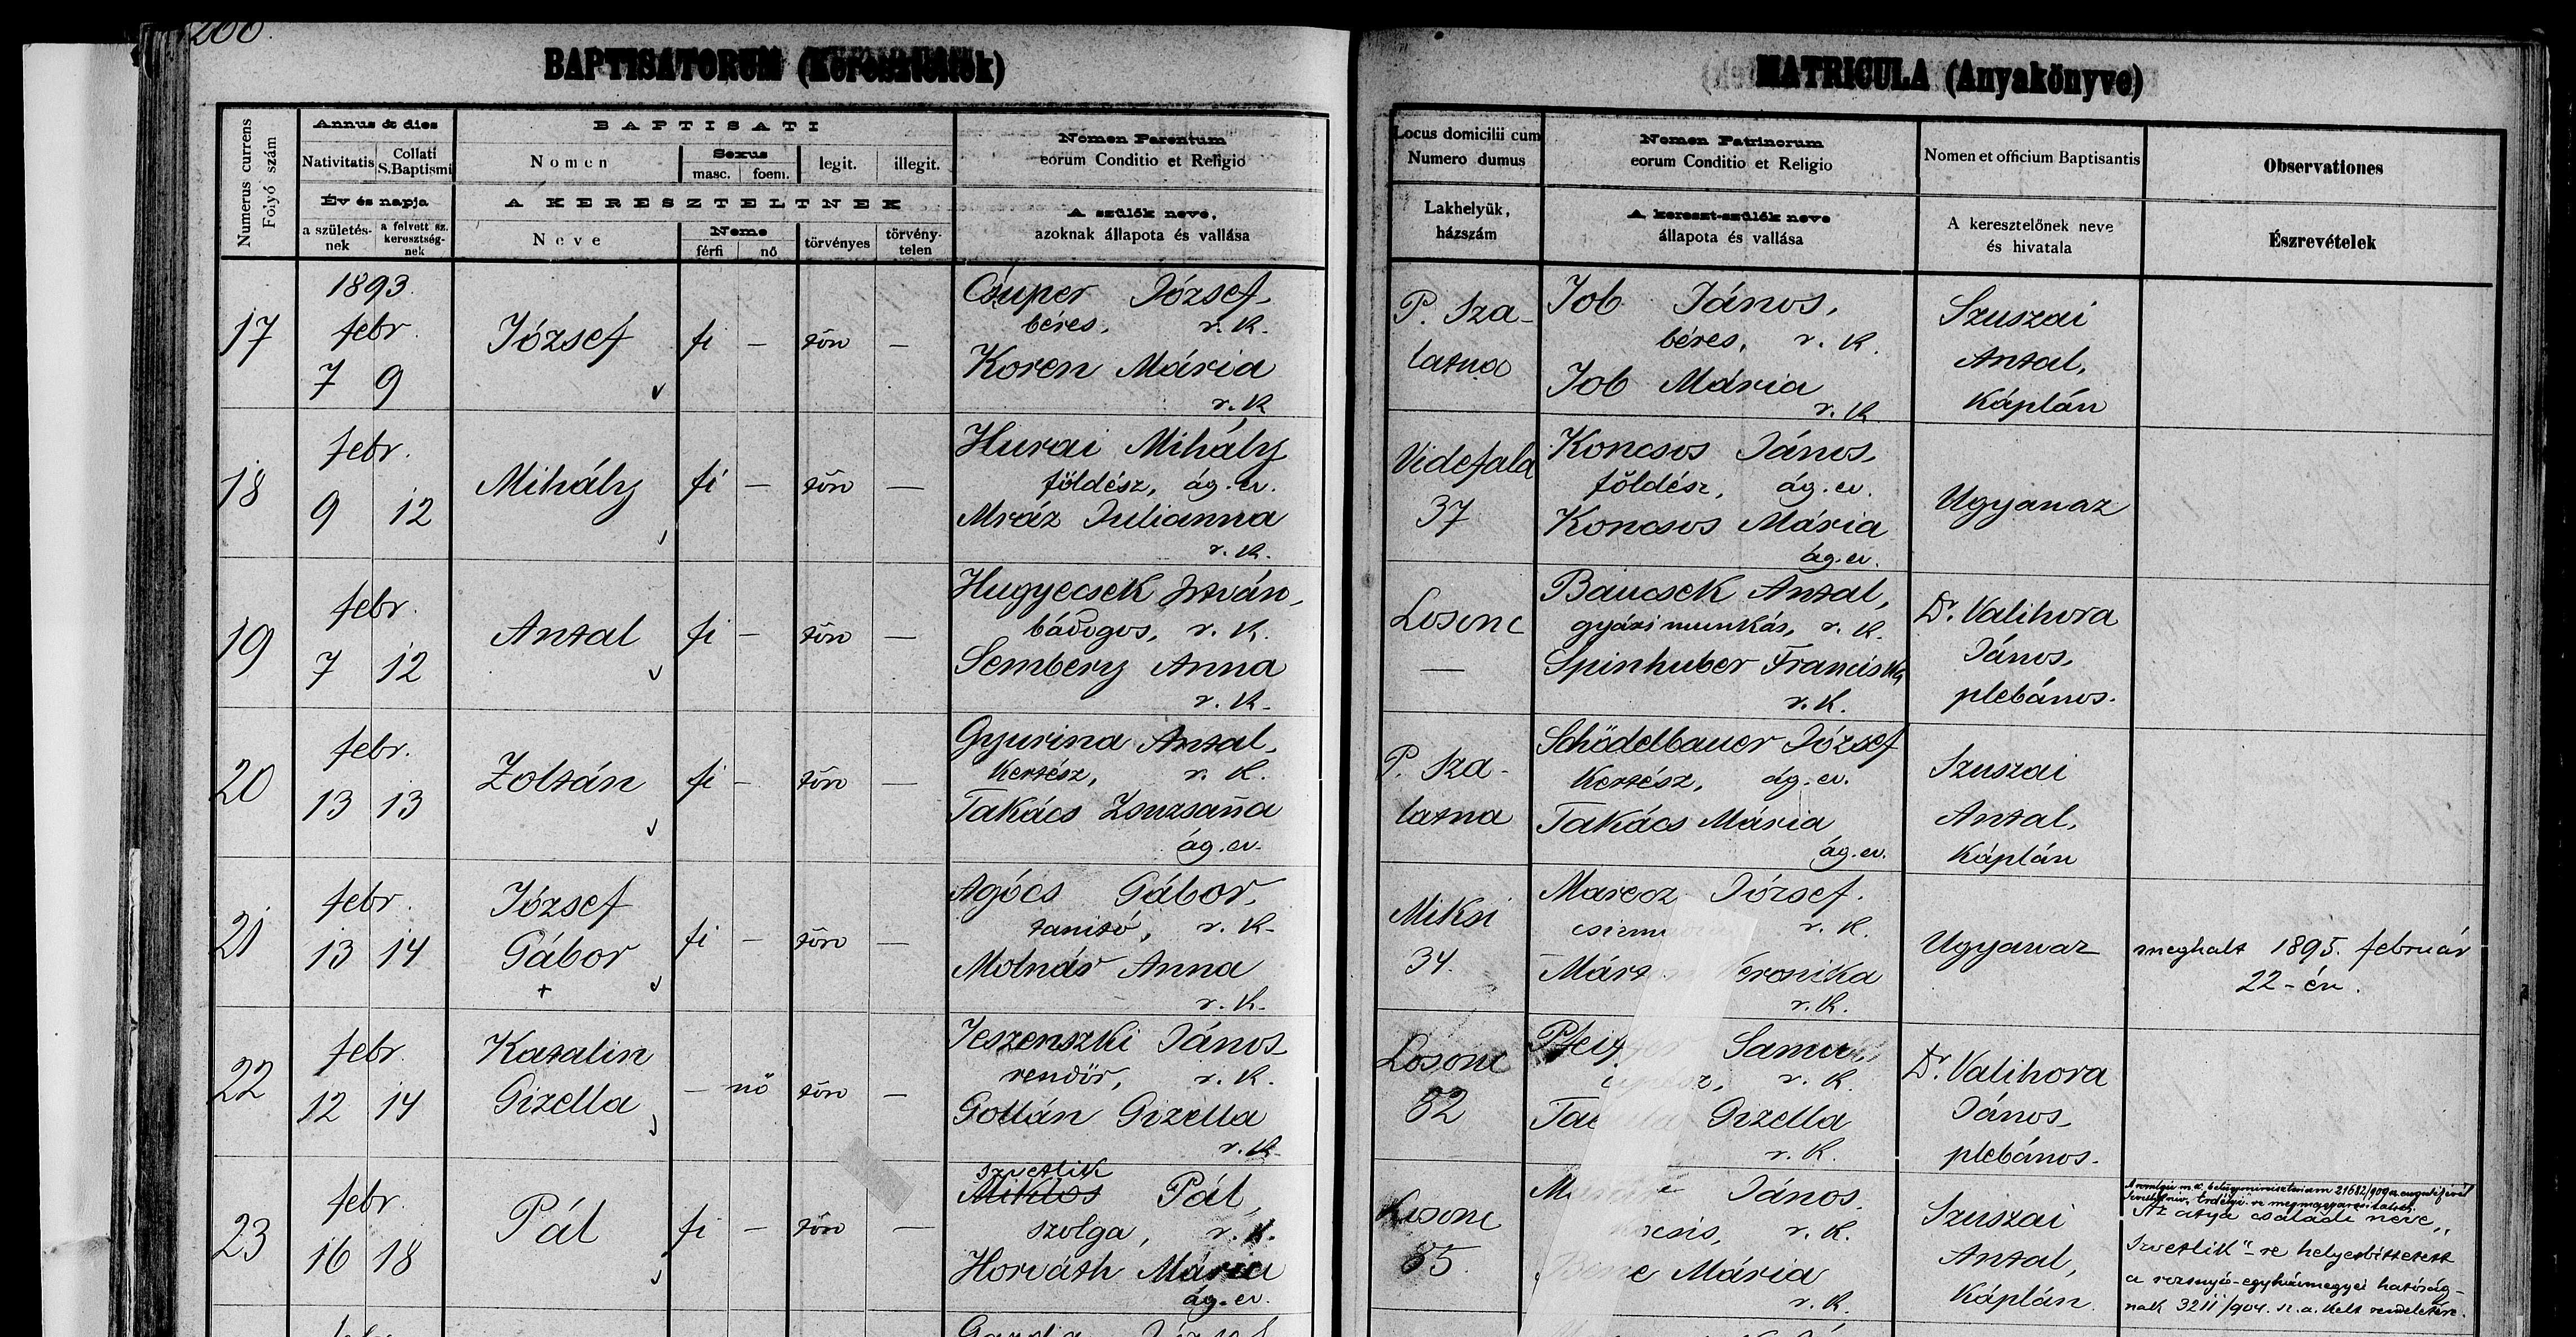 200.
BAPTISATORUM (Kereszteltek)
MATRICULA (Anyakönyve)
Numerus currens
Folyó szám
Annus & dies
Nativitatis
Collati
S.Baptismi
Év és napja
a születés-
nek
a felvett sz.
keresztség-
nek
BAPTISATI
Nomen
Sexus
masc.
foem.
legit.
illegit.
A KERESZTELTNEK
Neve
Neme
férfi
nő
törvényes
törvény-
telen
Nomen Parentum
eorum Conditio et Religio
A szülők neve,
azoknak állapota és vallása
Locus domicilii cum
Numero dumus
Lakhelyük,
házszám
Nomen Patrinorum
eorum Conditio et Religio
A kereszt-szülők neve
állapota és vallása
Nomen et officium Baptisantis
A keresztelőnek neve
és hivatala
Observationes
Észrevételek
17
1893.
febr.
7 9
József
fi — tön —
Csuper József,
béres, r. k.
Koren Mária
r. k
P. Sza-
latna
Job János,
béres, r. k.
Job Mária
r. k
Szuszai
Antal,
káplán
18
febr.
9 12
Mihály
fi — tön —
Hurai Mihály
földész, ág. ev.
Mráz Julianna
r. k.
Videfala
37
Koncsos János,
földész, ág. ev.
Koncsos Mária
ág. ev.
Ugyanaz
19
febr.
7 12
Antal
fi — tön —
Hugyecsek István,
bádogos, r. k.
Sembery Anna
r. k.
Losonc
—
Baucsek Antal,
gyári munkás, r. k.
Spinhuber Franciska
r. k.
Dr. Valihora
János,
plebános.
20
febr.
13 13
Zoltán
fi — tön —
Gyurina Antal,
kertész, r. k.
Takács Zsuzsaña
ág. ev.
P. Sza-
latna
Schödelbauer József
kertész, ág. ev.
Takács Mária
ág. ev.
Szuszai
Antal,
káplán
21
febr.
13 14
József
Gábor
+
fi — tön —
Agócs Gábor,
tanitó, r. k.
Molnár Anna
r. k.
Miksi
34.
Marcoz József.
r. k.
r. k.
Ugyanaz
meghalt 1895. február
22-én.
22
febr.
12 14
Katalin
Gizella
— nő tön —
Jeszenszki János
rendőr, r. k.
Gottán Gizella
r. k.
Losonc
82
r. k.
Gizella
r. k.
Dr. Valihora
János,
plebános.
23
febr.
16 18
Pál
fi — tön —
Szvetlik
Miklos Pál,
szolga, r. k.
Horváth Mária
ág. ev.
Losonc
85.
János.
r. k.
Mária
r. k.
Szuszai
Antal,
káplán.
Az atya családi neve „
Szvetlik"-re helyesbittetett
a rozsnyó-egyházmegyei hatóság-
nak 3211/904. sz. a. kelt rendeletére.